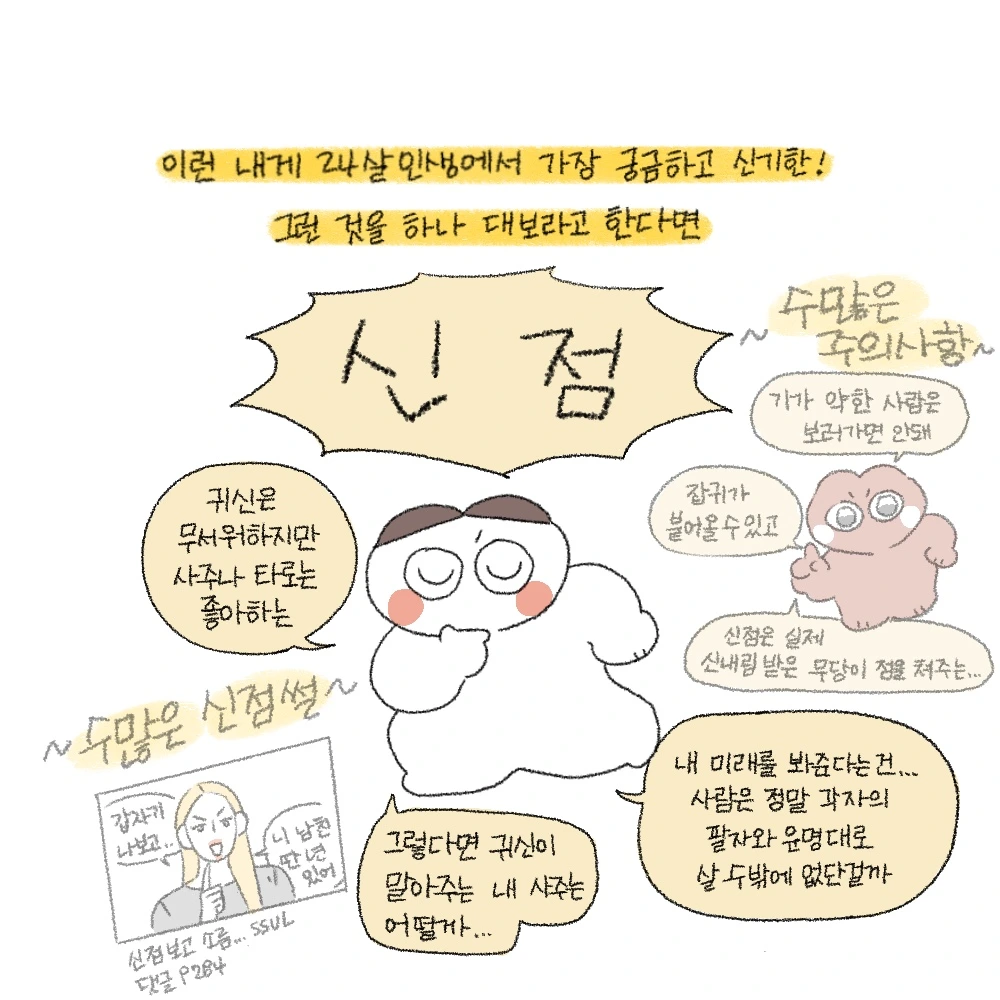 이런 내게 24살 인생에서 가장 궁금하고 신기한!
그런 것을 하나 대보라고 한다면
신 점
~ 수많은
주의사항~
기가 약한 사람은
보러가면 안돼
잡귀가
붙어올 수 있고
신점은 실제
신내림 받은 무당이 점을 쳐주는...
귀신은
무서워하지만
사주나 타로는
좋아하는
~ 수많은 신점썰 ~
갑자기
나보고..
니 남친
딴 년
있어
신점보고 소름... SSUL
댓글 9284
그렇다면 귀신이
말아주는 내 사주는
어떨까...
내 미래를 봐준다는건...
사람은 정말 각자의
팔자와 운명대로
살 수밖에 없단걸까